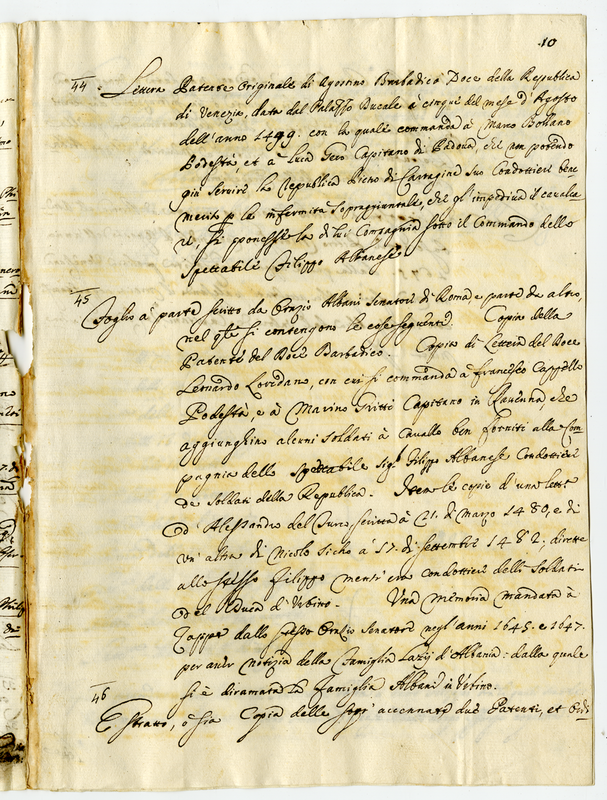 10
44. Lettera Patente Originale di Agostino Barbadico Doce della Republica
di Venezia, data dal Palazzo Ducale à cinque del mese d'Agosto
dell'anno 1499. con la quale commanda à Marco Bollano
Podestà, et à Luca Zeno Capitano di Padova, che non potendo
più servire la Republica Pietro di Cartagine suo Condottiere bene
merito p la infermità sopraggiuntale, che gl'impediva il cavalca
re, si ponesse la di lui Compagnia sotto il Commando dello
Spettabile Filippo Albanese
45 Foglio à parte scritto da Orazio Albani Senatore di Roma, e parte da altro,
nel qle si contengono le cose seguenti. Copia della
Patente del Doce Barbadico. Copia di Lettera del Doce
Leonardo Loredano, con cui si commanda à Francesco Cappello
Podestà, e à Marino Gritti Capitano in Ravenna, che
aggiunghino alcuni soldati à Cavallo ben forniti alla Com
pagnia dello Spettabile Sigr Filippo Albanese Condottiere
de Soldati della Republica. Item le copie d'una lettr
d'Alessandro del scritta à 21. di Marzo 1480, e di
un'altra di Nicolò à 17. di settembre 1482; dirette
allo stesso Filippo mentr'era Condottiere delli Soldati
del Duca d'Urbino. Una Memoria mandata à
dallo stesso Orazio Senatore negl'anni 1645. e 1647.
per aver notizia della Famiglia Lazij d'Albania: dalla quale
si è diramata la Famiglia Albani d'Urbino.
46 Estratto, ò sia Copia delle accennate due Patenti, et